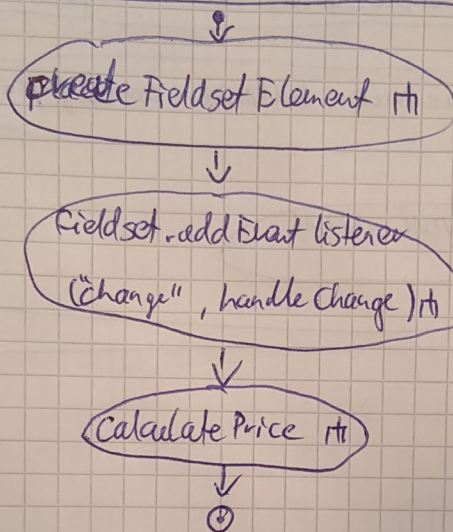 create Fieldset Element
Fieldset.addEvent listener
("change", handle Change)
Calculate Price